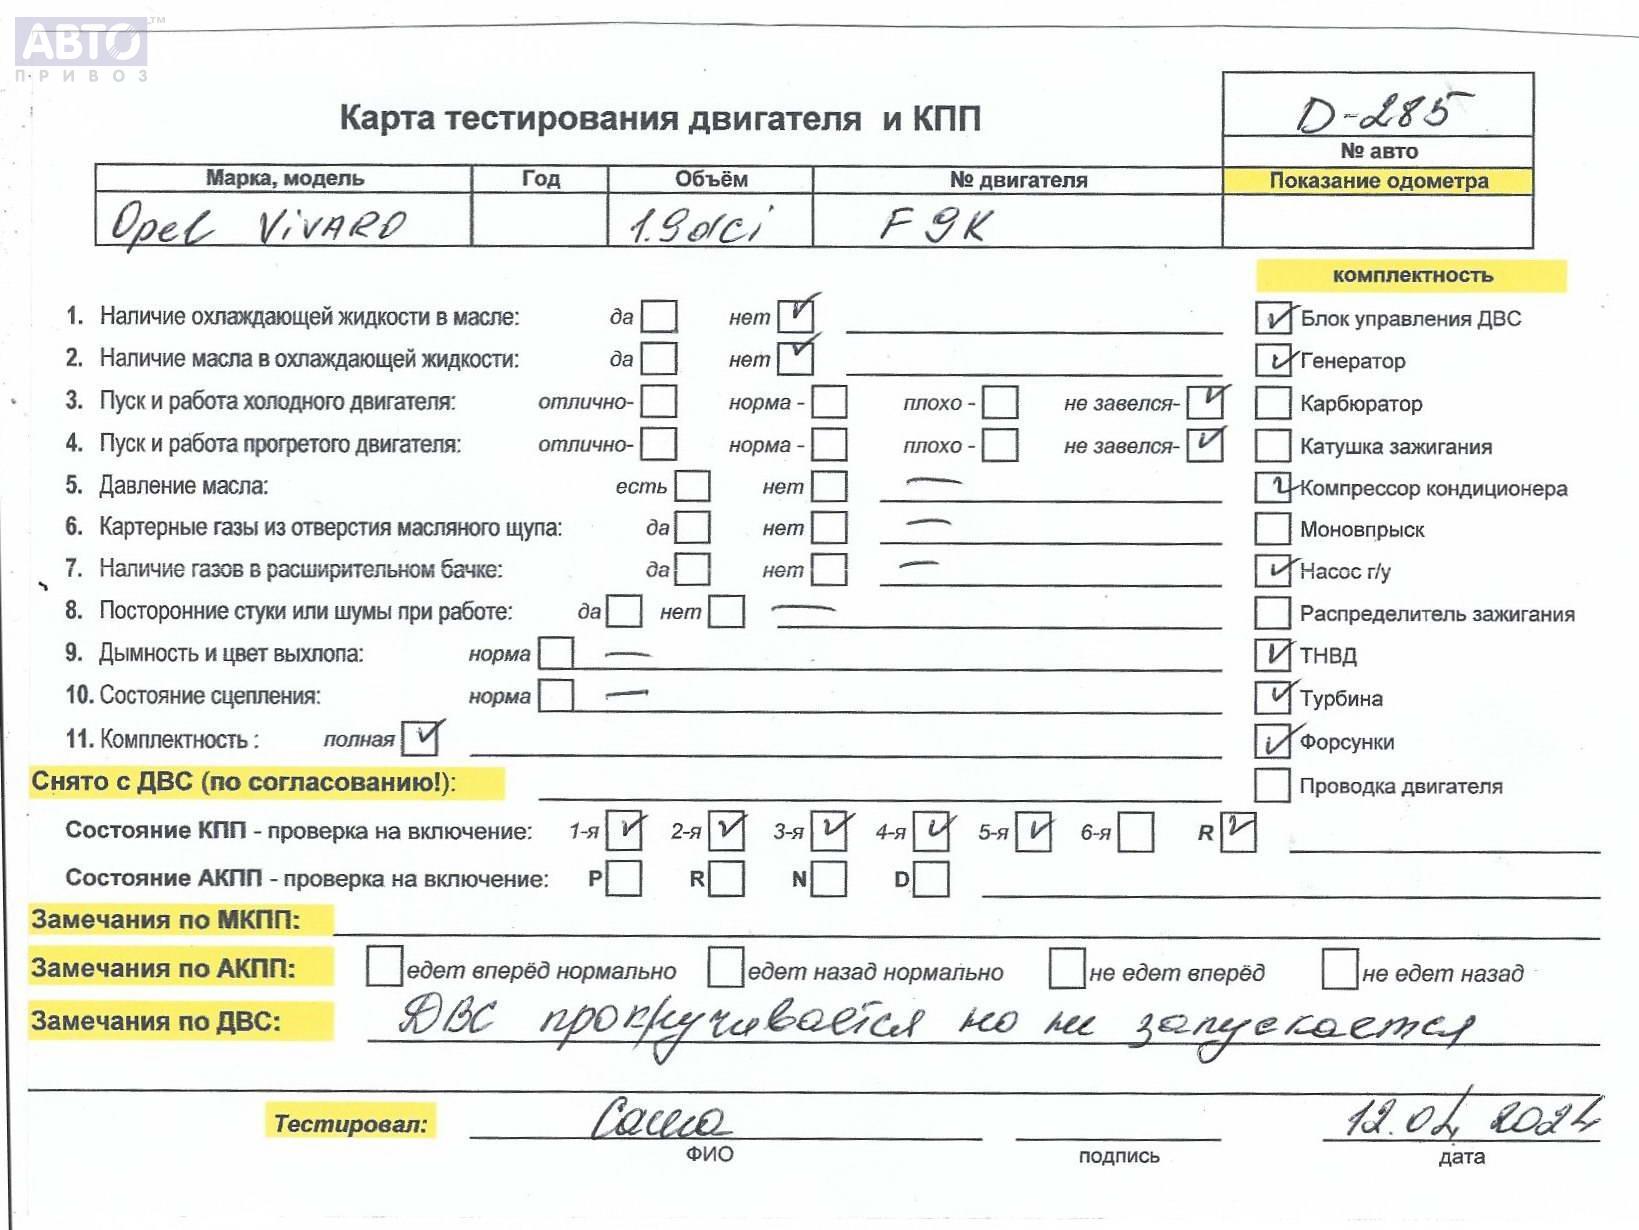 АВТО™
ПРИВОЗ
Карта тестирования двигателя и КПП
D-285
№ авто
Марка, модель Год Объём № двигателя Показание одометра
Opel ViVARO 1.9dci F9K
комплектность
1. Наличие охлаждающей жидкости в масле: да нет ✓ ✓ Блок управления ДВС
2. Наличие масла в охлаждающей жидкости: да нет ✓ ✓ Генератор
3. Пуск и работа холодного двигателя: отлично- норма - плохо - не завелся- ✓ Карбюратор
4. Пуск и работа прогретого двигателя: отлично- норма - плохо - не завелся- ✓ Катушка зажигания
5. Давление масла: есть нет — ✓ Компрессор кондиционера
6. Картерные газы из отверстия масляного щупа: да нет — Моновпрыск
7. Наличие газов в расширительном бачке: да нет — ✓ Насос г/у
8. Посторонние стуки или шумы при работе: да нет — Распределитель зажигания
9. Дымность и цвет выхлопа: норма — ✓ ТНВД
10. Состояние сцепления: норма — ✓ Турбина
11. Комплектность : полная ✓ ✓ Форсунки
Снято с ДВС (по согласованию!): Проводка двигателя
Состояние КПП - проверка на включение: 1-я ✓ 2-я ✓ 3-я ✓ 4-я ✓ 5-я ✓ 6-я R ✓
Состояние АКПП - проверка на включение: P R N D
Замечания по МКПП:
Замечания по АКПП: едет вперёд нормально едет назад нормально не едет вперёд не едет назад
Замечания по ДВС: ДВС прокручивается но не запускается
Тестировал: Саша 12.04.2024
ФИО подпись дата